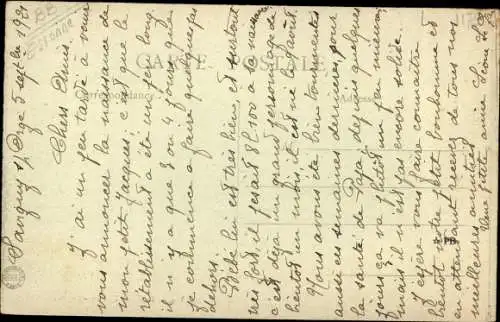 BB
Essonne
CARTE POSTALE
Correspondance
Adresse
Savigny s/ Orge 5 septbre 1921
Chers Amis.
J'ai un peu tardé à vous
vous annoncer la naissance de
mon petit Jacques; c'est que le
rétablissement a été un peu long.
il n'y a que 3 ou 4 jours que
je commence à faire quelques pas
dehors.
Bébé lui est très bien, et surtout
très fort, il pesait 8l,500 à la naissance
c'est déjà un grand personnage de
bientôt un mois, il est né le 7 août.
Nous avons été bien tourmentés
aussi ces semaines dernières, pour
la santé de Papa, depuis quelques
jours ça va plutôt un peu mieux
mais il n'est pas encore solide.
J'espère vous faire connaître
bientôt notre petit bonhomme et
en attendant recevez de tous nos
meilleures amitiés
Votre petite amie